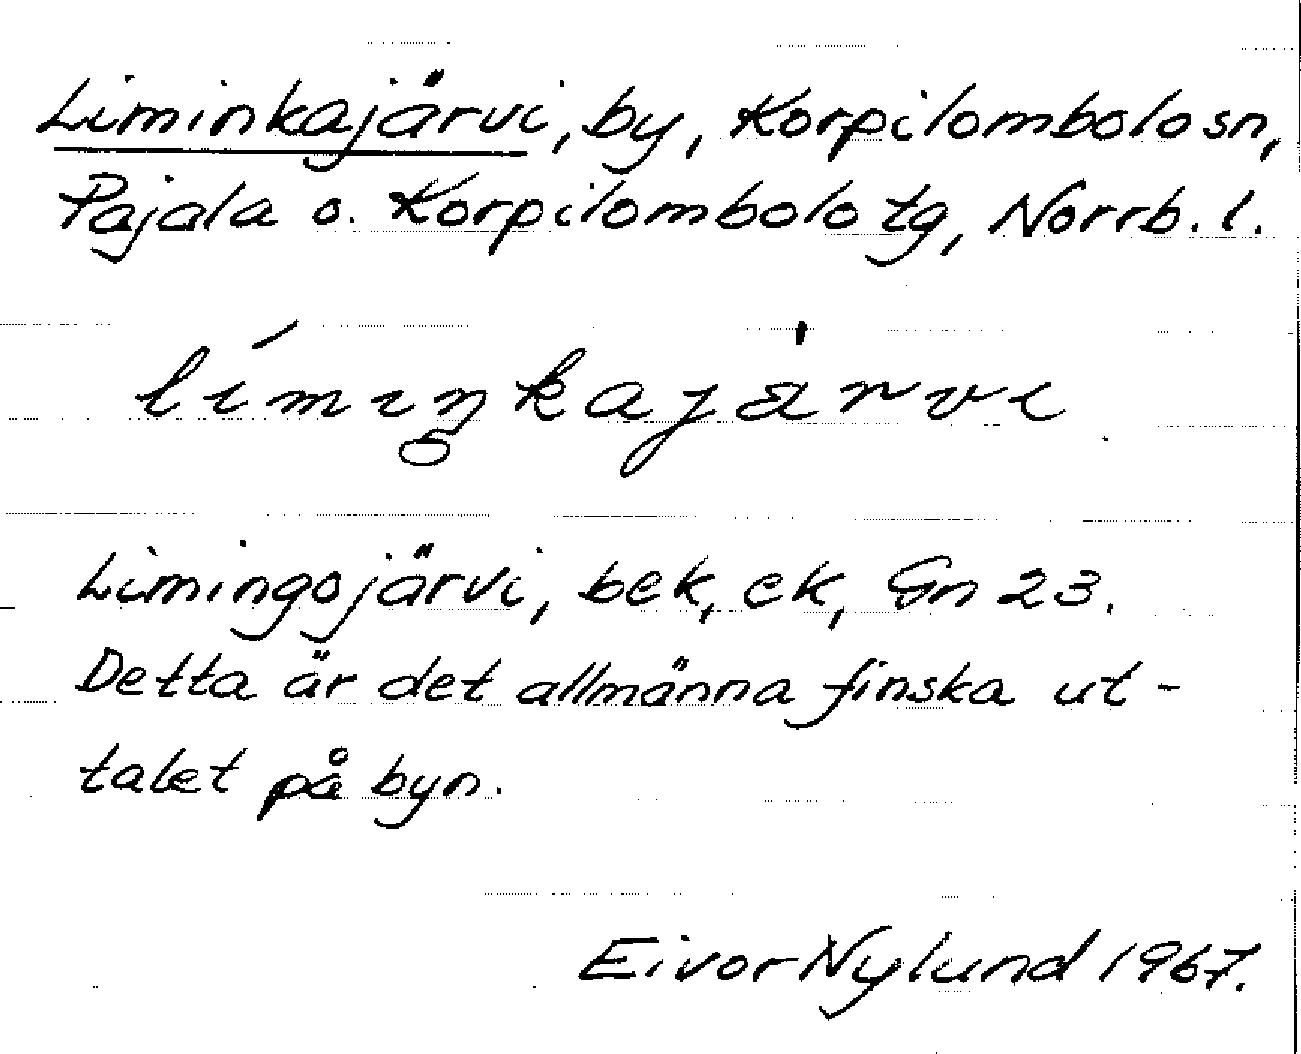 Liminkajärvi, by, Korpilombolo sn,
Pajala o. Korpilombolo tg, Norrb. l.
Limingojärvi, bek, ek, Gn 23.
Detta är det allmänna finska ut-
talet på byn.
Eivor Nylund 1967.